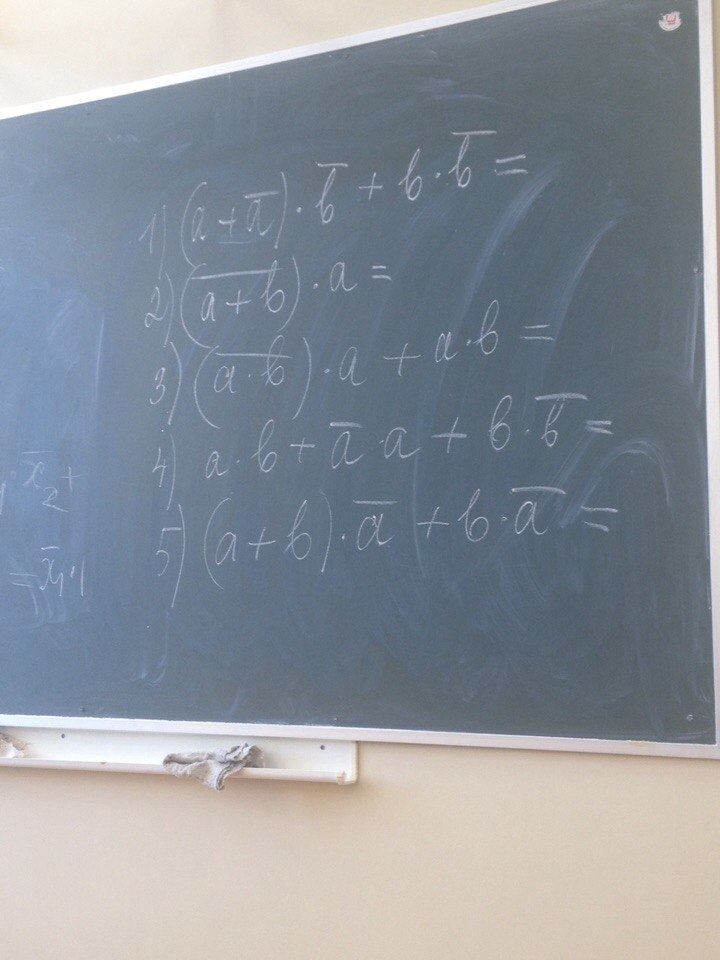 1) (a + a̅) · b̅ + b · b̅ =
2) (a̅ ̅+̅ ̅b̅) · a =
3) (a̅ ̅·̅ ̅b̅) · a + a · b =
4) a · b + a̅ · a + b · b̅ =
5) (a + b) · a̅ + b · a̅ =
· x̅₂ +
= x̅₁ · 1